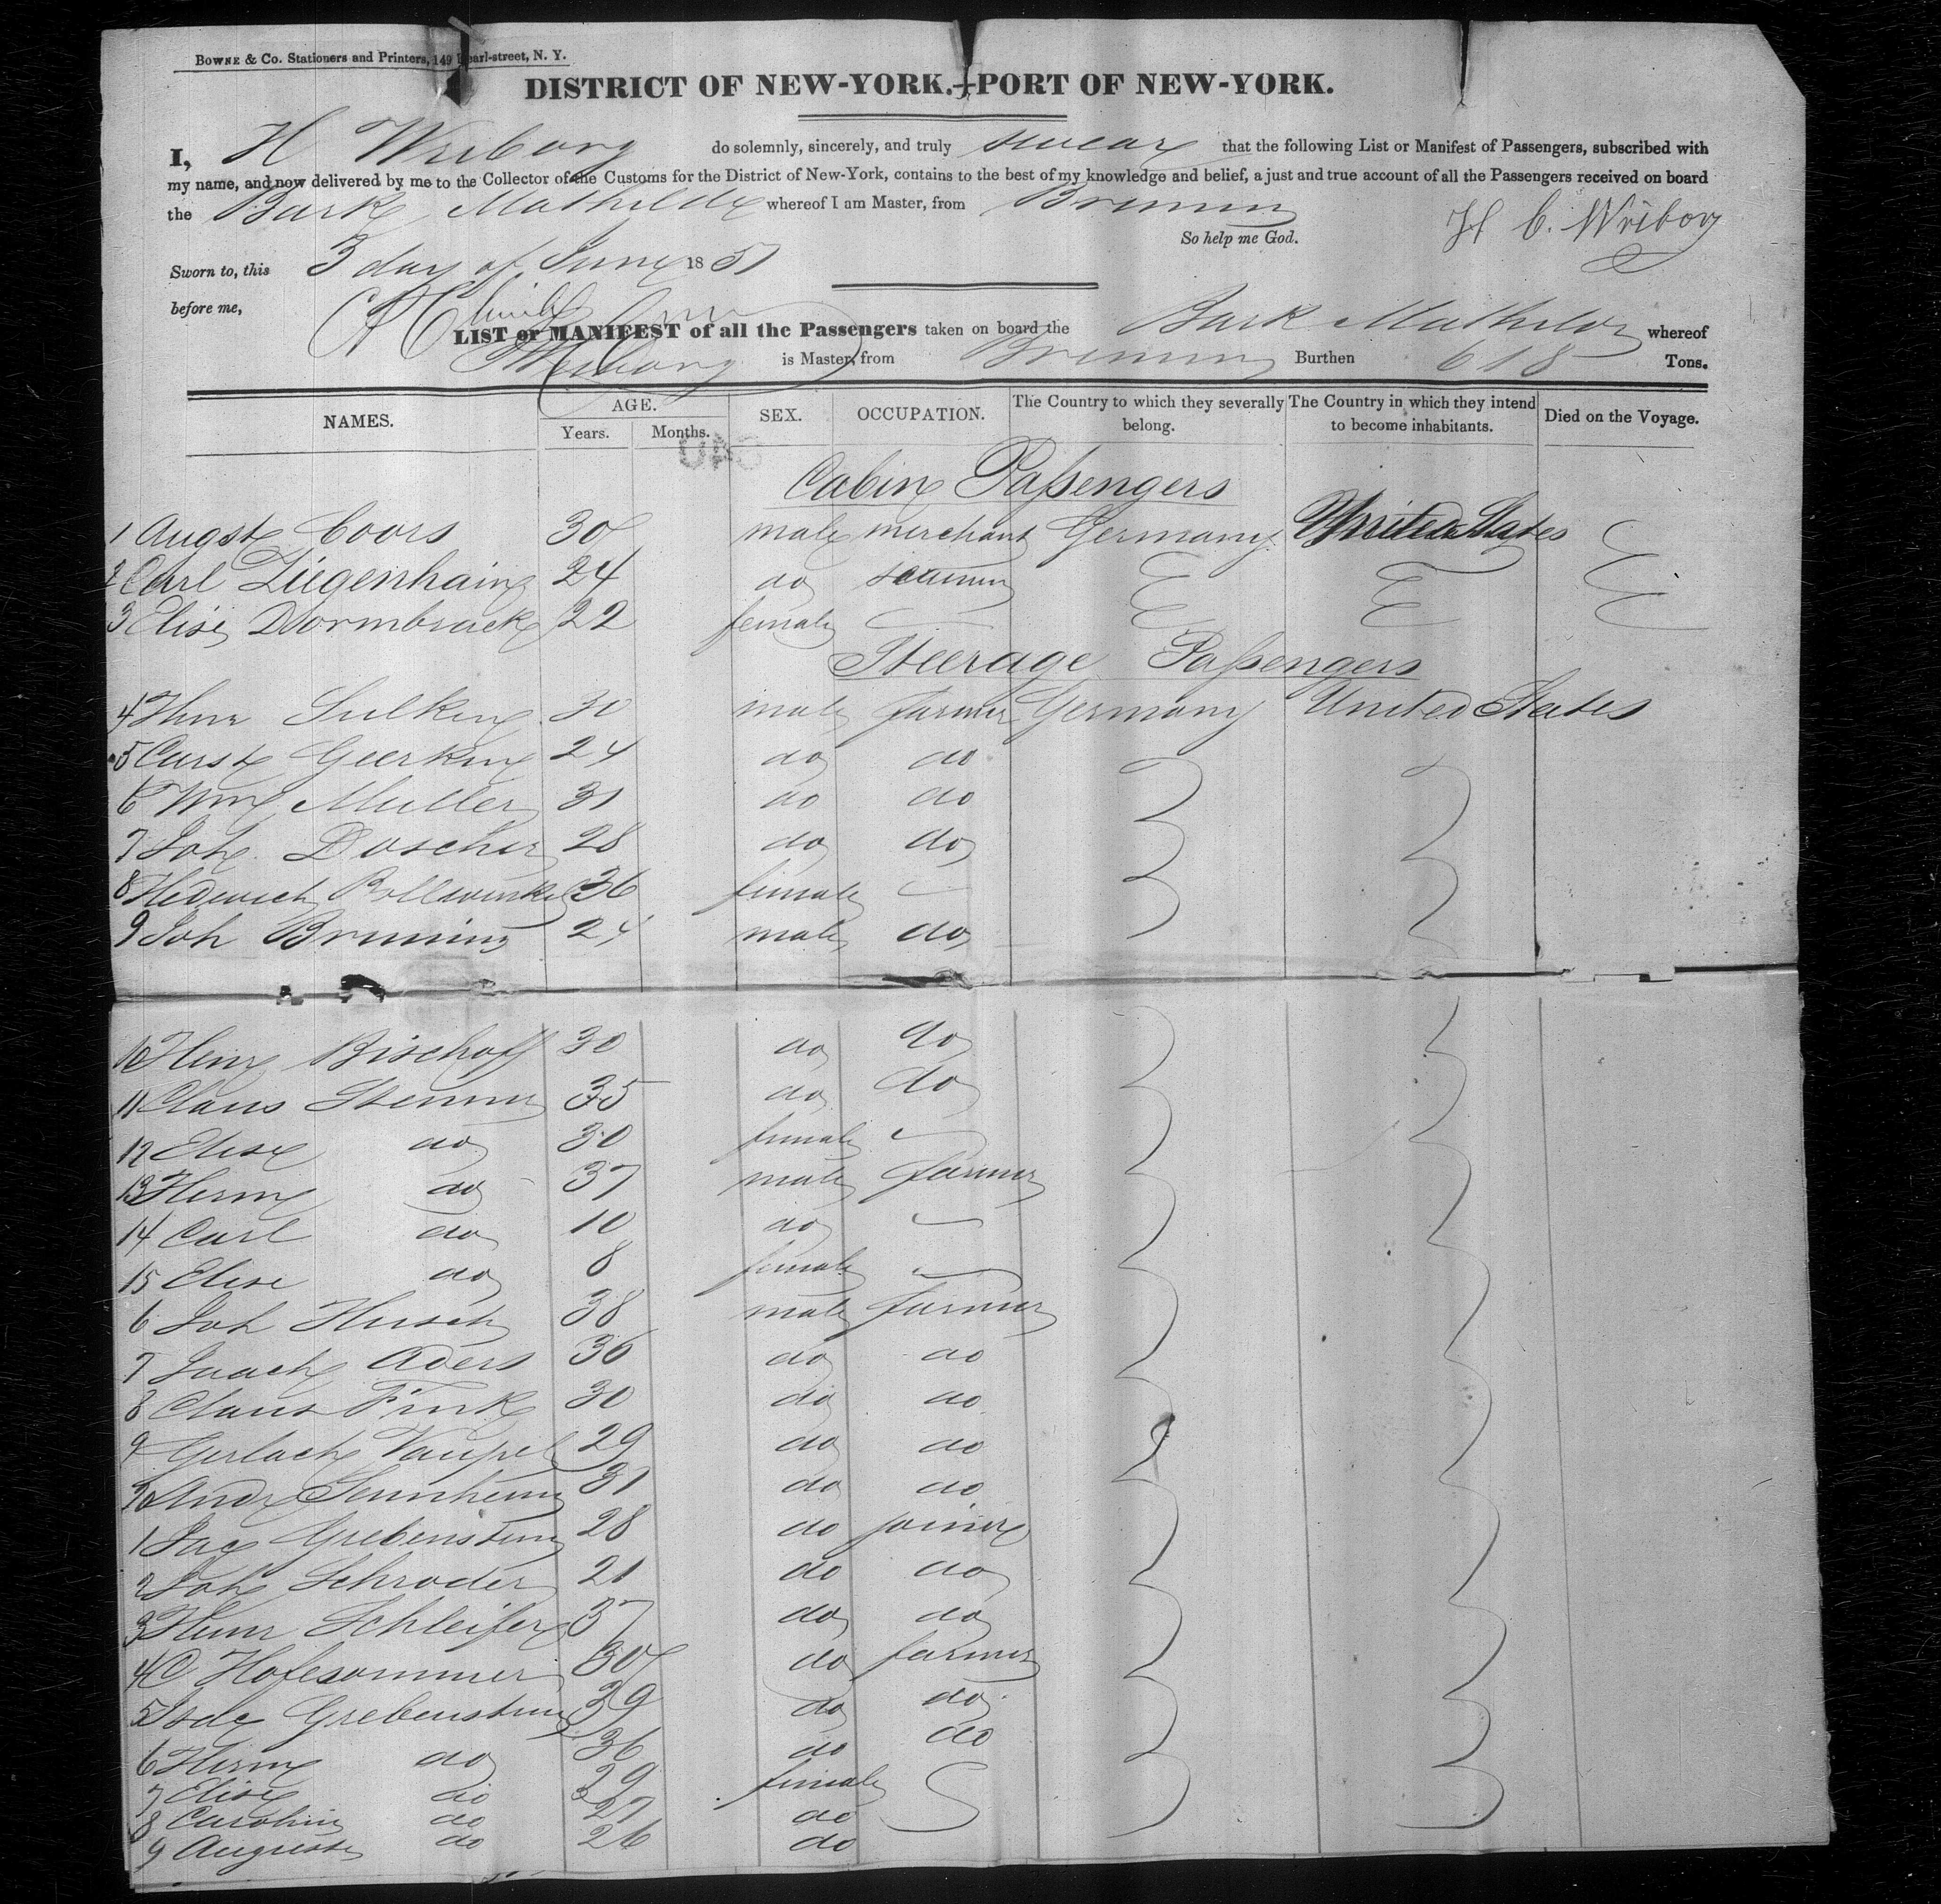 BOWNE & Co. Stationers and Printers, 149 Pearl-street, N. Y.
DISTRICT OF NEW-YORK.—PORT OF NEW-YORK.
I, H Wriborg do solemnly, sincerely, and truly swear that the following List or Manifest of Passengers, subscribed with
my name, and now delivered by me to the Collector of the Customs for the District of New-York, contains to the best of my knowledge and belief, a just and true account of all the Passengers received on board
the Bark Mathilde whereof I am Master, from Bremen
So help me God. H C. Wriborg
Sworn to, this 3 day of June 1851
before me,
LIST or MANIFEST of all the Passengers taken on board the Bark Mathilde whereof
Wriborg is Master, from Bremen Burthen 618 Tons.
NAMES. AGE. SEX. OCCUPATION. The Country to which they severally belong. The Country in which they intend to become inhabitants. Died on the Voyage.
Years. Months.
Cabin Passengers
1 Augst Coors 30 male merchant Germany United States
2 Carl Ziegenhain 24 do
3 Elise Dormbrack 22 female
Steerage Passengers
4 Henr Sulken 30 male farmer Germany United States
5 Carst Geerken 24 do do
6 Wm Muller 31 do do
7 Joh Doscher 28 do do
8 Hedewich Bollwinkel 36 female
9 Joh Bruning 24 male do
10 Henr Bischoff 30 do do
11 Claus Stemm 35 do do
12 Elise do 30 female
13 Herm do 37 male farmer
14 Carl do 10 do
15 Elise do 8 female
6 Joh Hirsch 38 male farmer
7 Aders 36 do do
8 Claus Fink 30 do do
9 Gerlach Vaupel 29 do do
20 Andr 31 do do
1 Jac Grebenstein 28 do joiner
2 Joh Schroder 21 do do
3 Henr Schleifer 37 do do
4 C Hofesommer 30 do farmer
5 Grebenstein 39 do do
6 Herm do 36 do do
7 Elise do 29 female
8 Caroline do 27 do
9 Auguste do 26 do